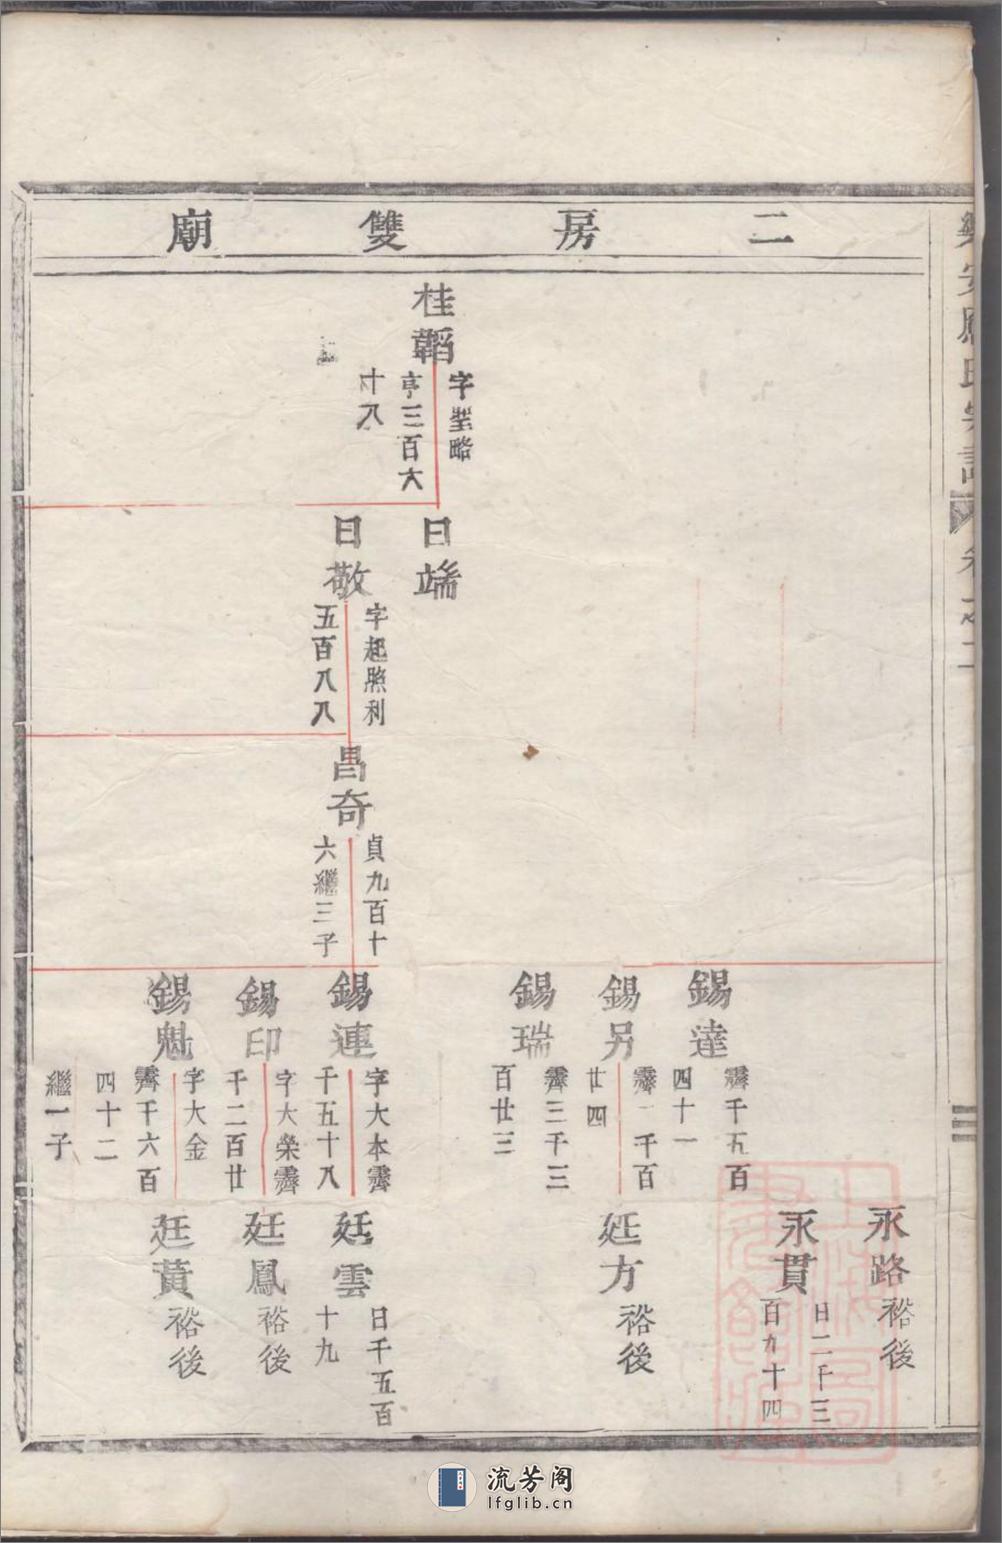 二房雙廟
桂韜
字聖略
亨三百六
十八
曰端
曰敬
字起熙利
五百八八
昌奇
貞九百十
六繼三子
錫達
霽千五百
四十一
錫另
霽一千百
廿四
錫瑞
霽三千三
百廿三
錫連
字大本霽
千五十八
錫印
字大榮霽
千二百廿
錫魁
字大金
霽千六百
四十二
繼一子
永路
裕後
永貫
日二千三
百九十四
廷方
裕後
廷雲
日千五百
十九
廷鳳
裕後
廷黃
裕後
卷之二
流芳阁
lfglib.cn